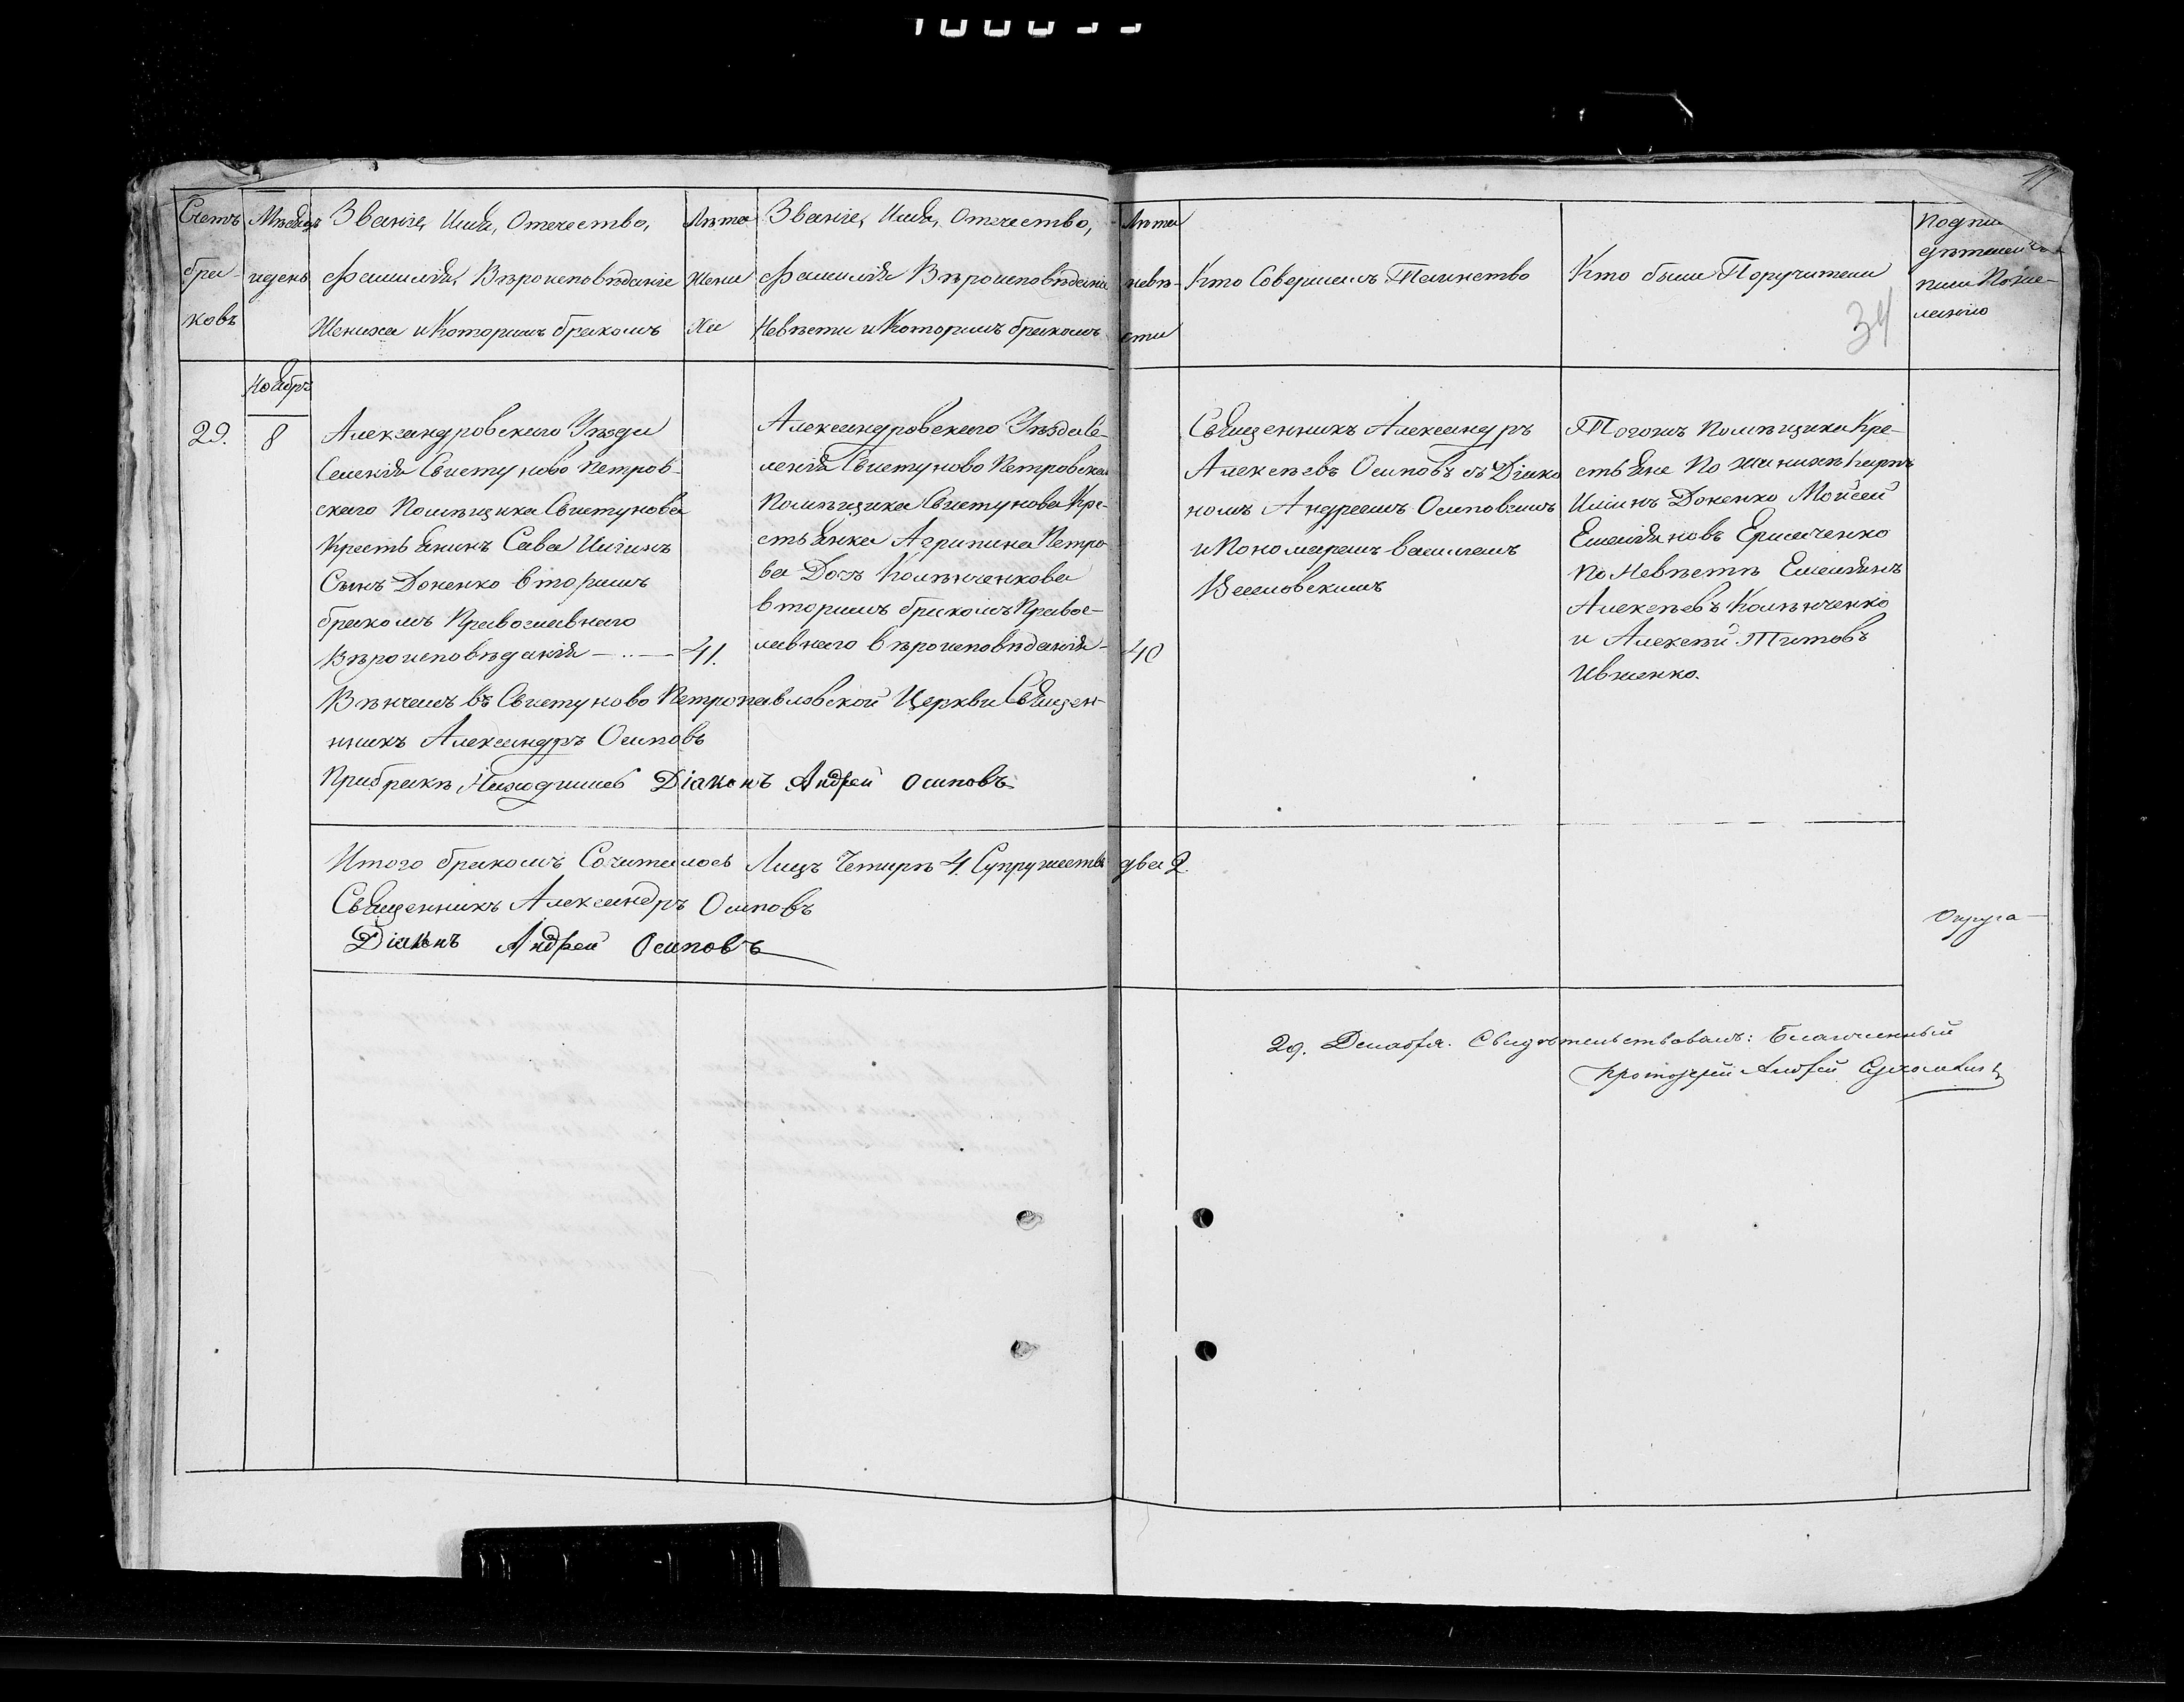 100033
Счетъ
бра-
ковъ
Мѣсяцъ
и день
Званіе, Имя, Отечество,
Фамилія, Вѣроисповѣданіе
Жениха и Которимъ бракомъ
Лѣта
Жени
ха
Званіе, Имя, Отечество,
Фамилія Вѣроисповѣданіе
Невѣсти и Которимъ бракомъ
Лѣта
невѣ-
сти
Кто Совершалъ Таинство
Кто были Поручители
34
Ноябрь
29.
8
Александровскаго Уѣзда
Селенія Свистуново Петров-
скаго Помѣщика Свистунова
Крестьянинъ Сава Илiинъ
Сынъ Доненко вторимъ
бракомъ Православнаго
Вѣроисповѣданія
41.
Александровскаго Уѣзда Се-
ленія Свистуново Петровска
Помѣщика Свистунова Кре-
стьянка Агрипина Петро
ва Дочь
вторимъ бракомъ Правос-
лавнаго вѣроисповѣданія
40
Священникъ Александръ
Алексѣевъ Осиповъ съ Діяко
номъ Андреемъ Осиповимъ
и Пономаремъ Василіемъ
Тогожъ Помѣщика Кре-
стьяне По женихѣ Карпъ
Илiинъ Доненко Мойсей
Емельяновъ Ермаченко
По Невѣстѣ Емельянъ
Алексѣевъ
и Алексѣй Титовъ
Ивженко.
Вѣнчалъ въ Свистуново Петропавловской Церкви Священ-
никъ Александръ Осиповъ
При бракѣ Находился Діаконъ Андрей Осиповъ
Итого бракомъ Сочиталось Лицъ Четирѣ 4. Супружествъ два 2
Священникъ Александръ Осиповъ
Діаконъ Андрей Осиповъ
29. Декабря. Свидѣтельствовалъ: Благочинный
Протоіерей Андрей